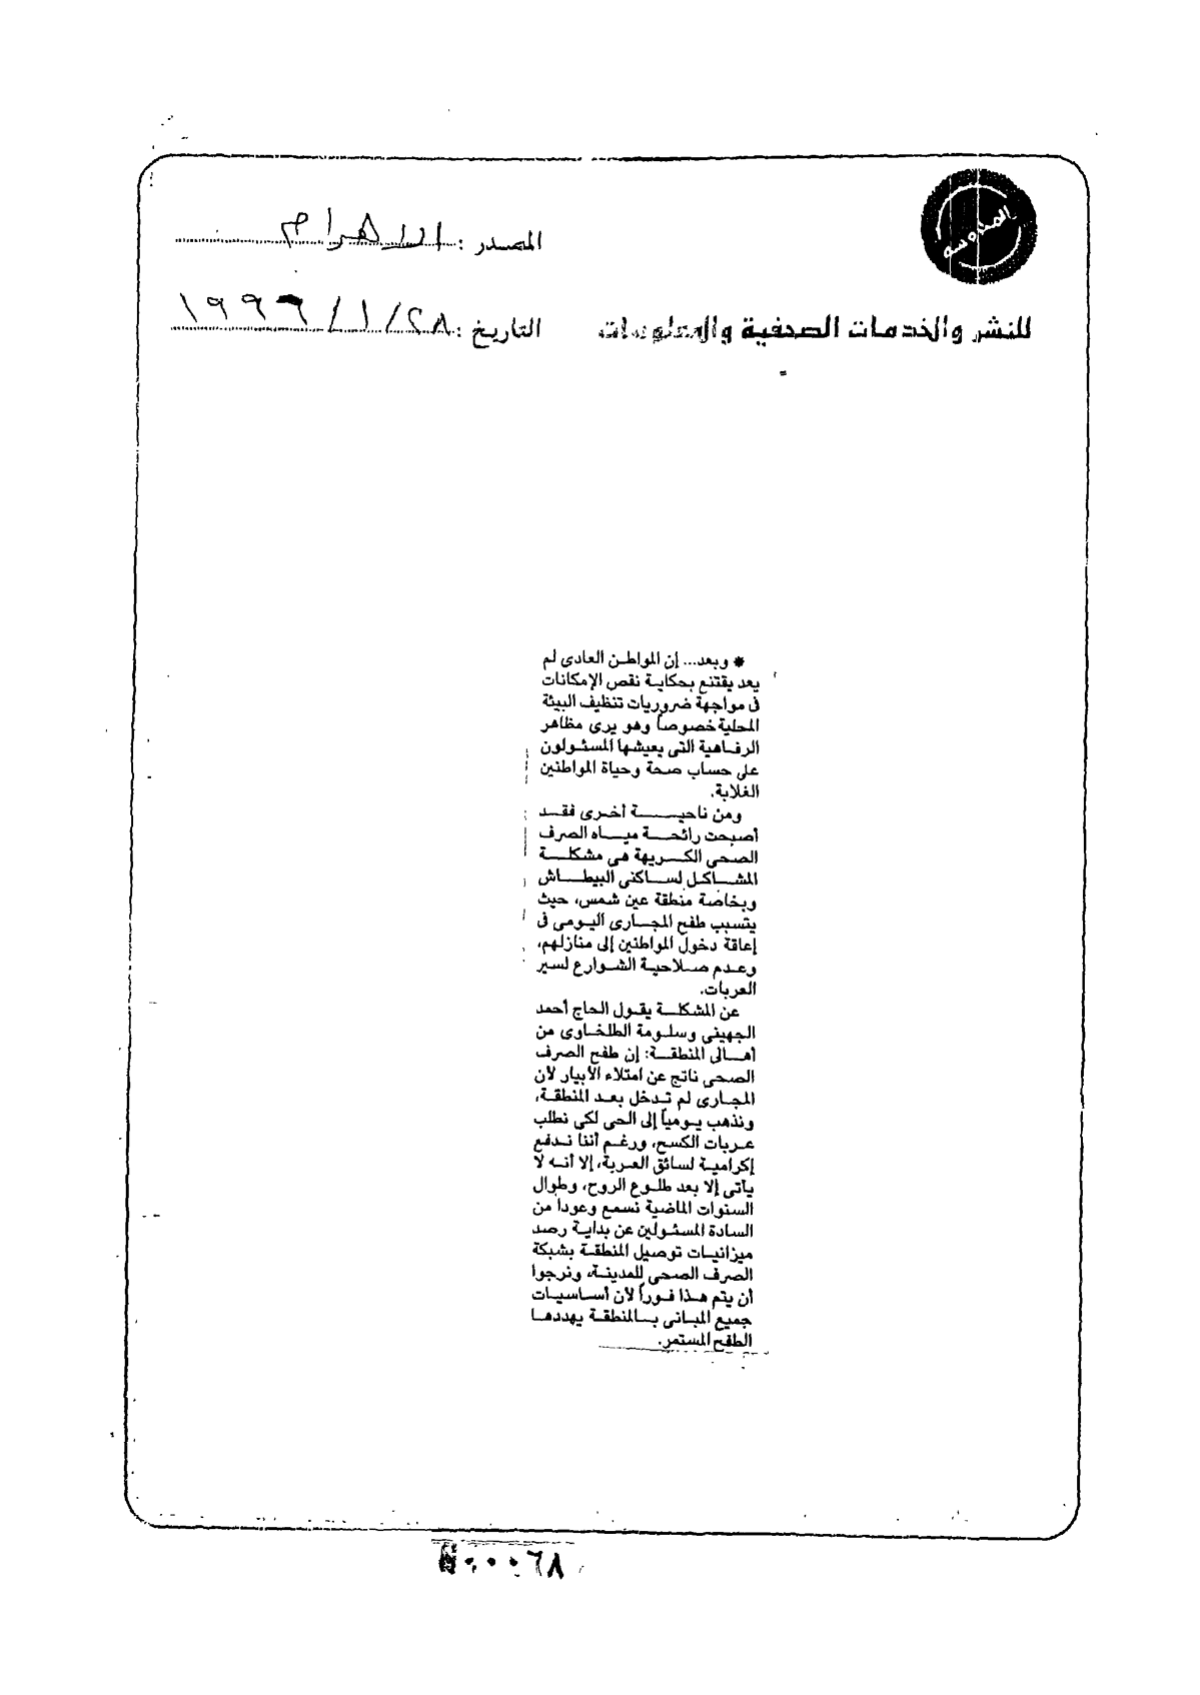 المحروسة
المصدر : الاهرام
للنشر والخدمات الصحفية والمعلومات
التاريخ : ٢٨ / ١ / ١٩٩٦
* وبعد... إن المواطن العادى لم
يعد يقتنع بحكاية نقص الإمكانات
فى مواجهة ضروريات تنظيف البيئة
المحلية خصوصاً وهو يرى مظاهر
الرفاهية التى يعيشها المسئولون
على حساب صحة وحياة المواطنين
الغلابة.
ومن ناحية أخرى فقد
أصبحت رائحة مياه الصرف
الصحى الكريهة هى مشكلة
المشاكل لساكنى البيطاش
وبخاصة منطقة عين شمس، حيث
يتسبب طفح المجارى اليومى فى
إعاقة دخول المواطنين إلى منازلهم،
وعدم صلاحية الشوارع لسير
العربات.
عن المشكلة يقول الحاج أحمد
الجهينى وسلومة الطلخاوى من
أهالى المنطقة: إن طفح الصرف
الصحى ناتج عن امتلاء الأبيار لأن
المجارى لم تدخل بعد المنطقة،
ونذهب يومياً إلى الحى لكى نطلب
عربات الكسح، ورغم أننا ندفع
إكرامية لسائق العربة، إلا أنه لا
يأتى إلا بعد طلوع الروح، وطوال
السنوات الماضية نسمع وعوداً من
السادة المسئولين عن بداية رصد
ميزانيات توصيل المنطقة بشبكة
الصرف الصحى للمدينة، ونرجوا
أن يتم هذا فوراً لأن أساسيات
جميع المبانى بالمنطقة يهددها
الطفح المستمر.
٠٠٠٦٨